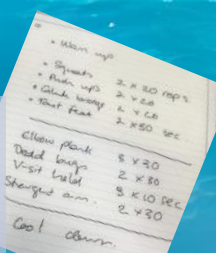 • Warm up
• Squats 2 x 20 reps
• Push ups 2 x 20
• Glute bridge 2 x 20
• Fast feet 2 x 30 sec
Elbow plank 3 x 30
Dead bugs 2 x 30
V-sit hold 3 x 10 sec
Straight arm 2 x 30
Cool down.